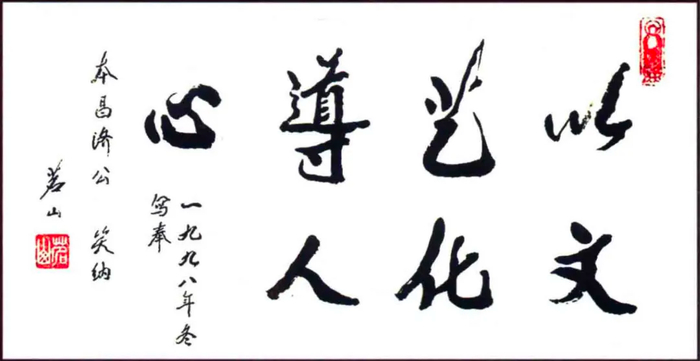 以文
艺化
導人
心
一九九八年冬
写奉
本昌济公 笑纳
茗山
茗山